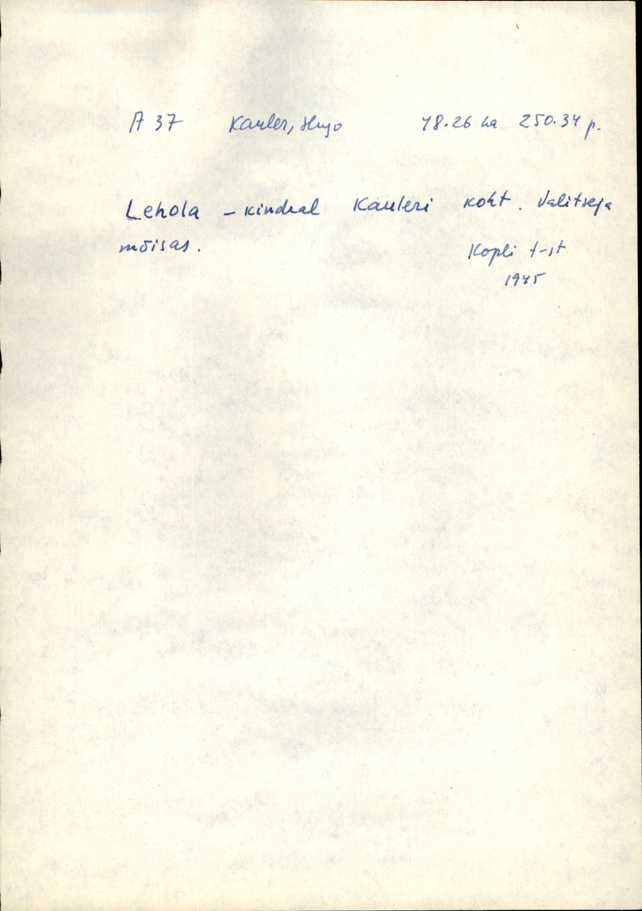 A 37 Kauler, Hugo 48.26 ha 250.34 p.
Lehola - kindral Kauleri koht. Valitseja
mõisas. Kopli t-st
1975